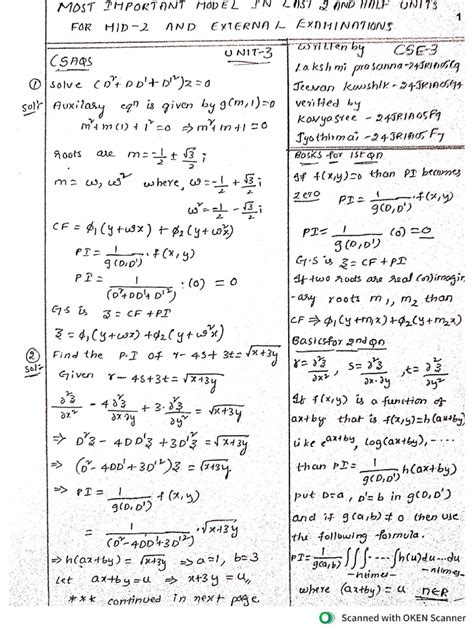 MOST IMPORTANT MODEL IN LAST 2 AND HALF UNITS
FOR MID-2 AND EXTERNAL EXAMINATIONS
1
UNIT-3
(SAQS
① Solve (D²+DD'+D'²)z=0
Sol:- Auxilary eqⁿ is given by g(m,1)=0
m²+m(1)+1²=0 ⇒ m²+m+1=0
roots are m = -1/2 ± √3/2 i
m = ω, ω² where, ω = -1/2 + √3/2 i
ω² = -1/2 - √3/2 i
CF = φ₁(y+ωx) + φ₂(y+ω²x)
PI = 1/g(D,D') · f(x,y)
PI = 1/(D²+DD'+D'²) · (0) = 0
G.S is z = CF+PI
z = φ₁(y+ωx)+φ₂(y+ω²x)
② Find the P.I of r-4s+3t = √x+3y
Sol:- Given r-4s+3t = √x+3y
∂²z/∂x² - 4 ∂²z/∂x∂y + 3·∂²z/∂y² = √x+3y
⇒ D²z - 4DD'z + 3D'²z = √x+3y
⇒ (D²-4DD'+3D'²)z = √x+3y
⇒ PI = 1/g(D,D') f(x,y)
= 1/(D²-4DD'+3D'²) · √x+3y
⇒ h(ax+by) = √x+3y ⇒ a=1, b=3
Let ax+by = u ⇒ x+3y = u,
*** continued in next page
written by CSE-3
Lakshmi prasanna-
Jeevan Koushik -
verified by
Kavyasree -
Jyothirmai -
Basics for 1st qn
If f(x,y)=0 than PI becomes
zero PI = 1/g(D,D') · f(x,y)
PI = 1/g(D,D') (0) = 0
G.S is z = CF+PI
If two roots are real (or) imagin
-ary roots m₁, m₂ than
CF ⇒ φ₁(y+m₁x)+φ₂(y+m₂x)
Basics for 2nd qn
r = ∂²z/∂x², s = ∂²z/∂x·∂y, t = ∂²z/∂y²
If f(x,y) is a function of
ax+by that is f(x,y)=h(ax+by)
like e^ax+by, log(ax+by),-...
than PI = 1/g(D,D') h(ax+by)
put D=a, D'=b in g(D,D')
and if g(a,b)≠0 then use
the following formula.
PI = 1/g(a,b) ∫∫∫----∫h(u)du...du
-ntimes- -ntimes-
where (ax+by) = u n∈R
Scanned with OKEN Scanner